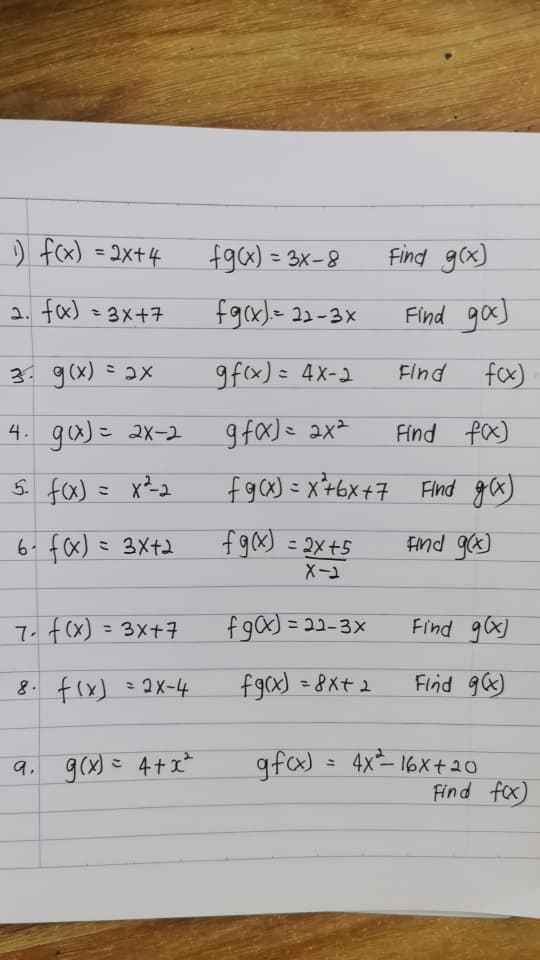 1) f(x) = 2x+4 fg(x) = 3x-8 Find g(x)
2. f(x) = 3x+7 fg(x) = 22-3x Find g(x)
3. g(x) = 2x gf(x) = 4x-2 Find f(x)
4. g(x) = 2x-2 gf(x) = 2x² Find f(x)
5. f(x) = x²-2 fg(x) = x²+6x+7 Find g(x)
6. f(x) = 3x+2 fg(x) = 2x+5 Find g(x)
x-2
7. f(x) = 3x+7 fg(x) = 22-3x Find g(x)
8. f(x) = 2x-4 fg(x) = 8x+2 Find g(x)
9. g(x) = 4+x² gf(x) = 4x²-16x+20
Find f(x)